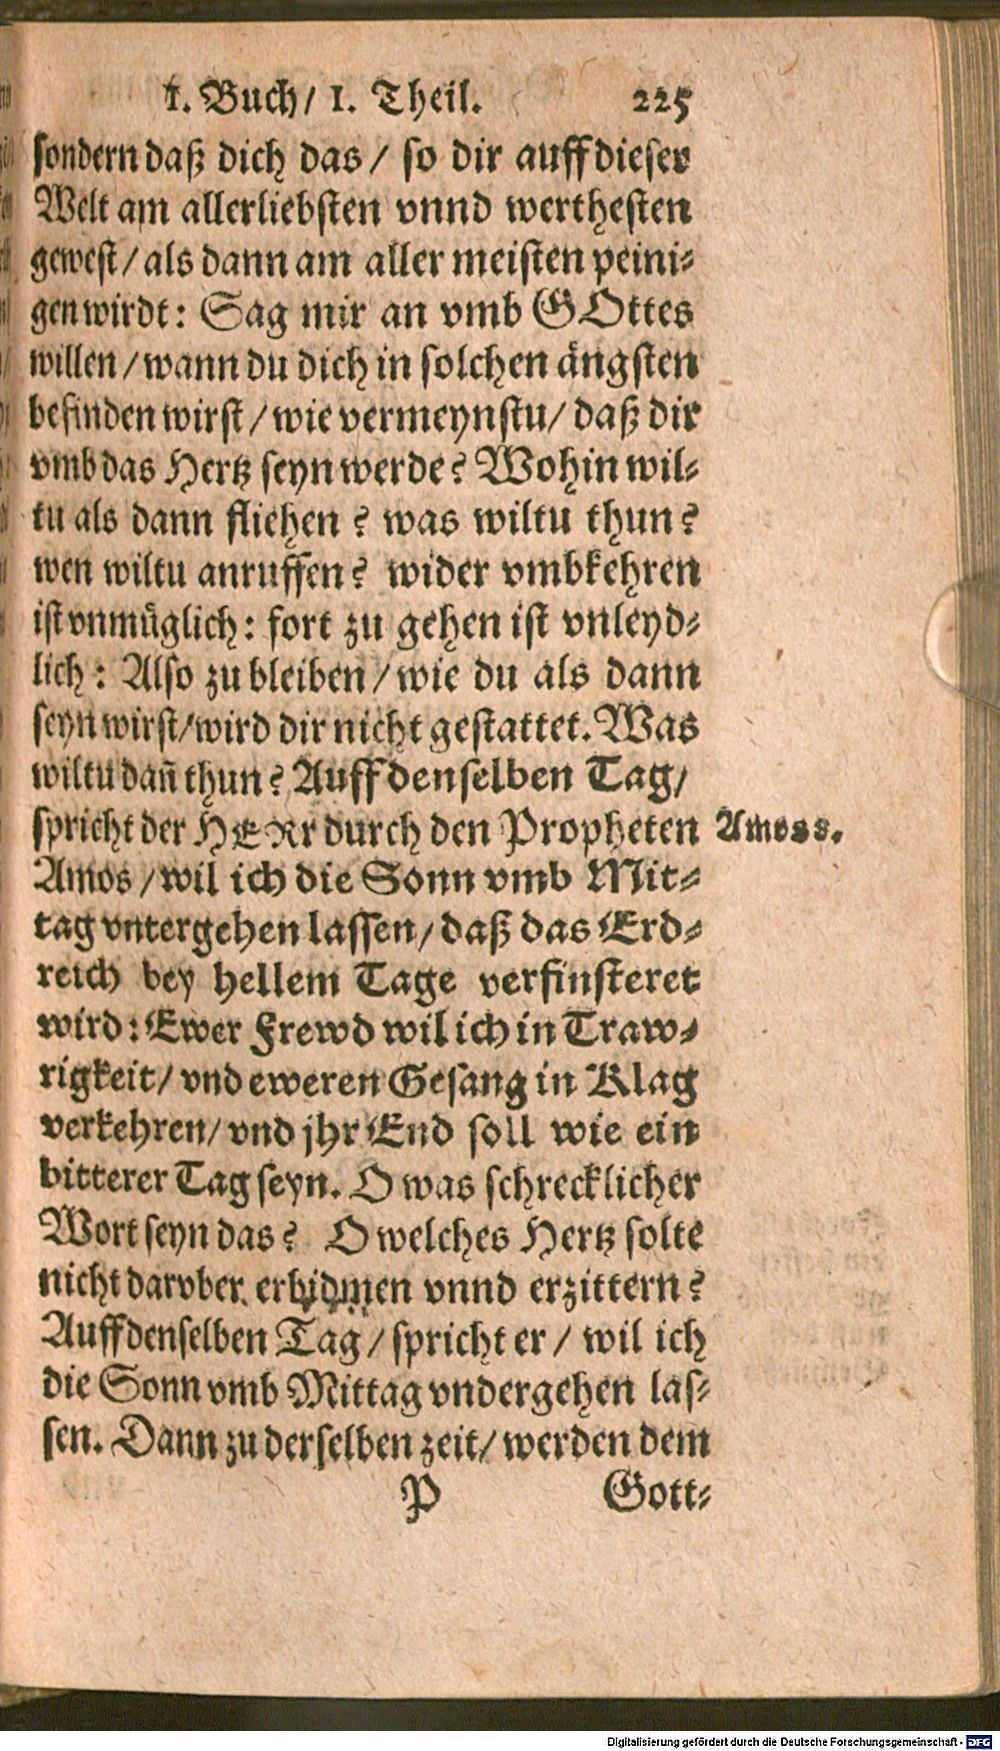 1. Buch/ 1. Theil. 225
sondern daß dich das/ so dir auff dieser
Welt am allerliebsten vnnd werthesten
gewest/ als dann am aller meisten peini-
gen wirdt: Sag mir an vmb GOttes
willen/ wann du dich in solchen ängsten
befinden wirst/ wie vermeynstu/ daß dir
vmb das Hertz seyn werde? Wohin wil-
tu als dann fliehen? was wiltu thun?
wen wiltu anruffen? wider vmbkehren
ist vnmüglich: fort zu gehen ist vnleyd-
lich: Also zu bleiben/ wie du als dann
seyn wirst/ wird dir nicht gestattet. Was
wiltu dañ thun? Auff denselben Tag/
spricht der HERr durch den Propheten Amos 8.
Amos/ wil ich die Sonn vmb Mit-
tag vntergehen lassen/ daß das Erd-
reich bey hellem Tage verfinsteret
wird: Ewer Frewd wil ich in Traw-
rigkeit/ vnd eweren Gesang in Klag
verkehren/ vnd jhr End soll wie ein
bitterer Tag seyn. O was schrecklicher
Wort seyn das? O welches Hertz solte
nicht darvber erbidmen vnnd erzittern?
Auff denselben Tag/ spricht er/ wil ich
die Sonn vmb Mittag vndergehen las-
sen. Dann zu derselben zeit/ werden dem
P Gott-
Digitalisierung gefördert durch die Deutsche Forschungsgemeinschaft - DFG